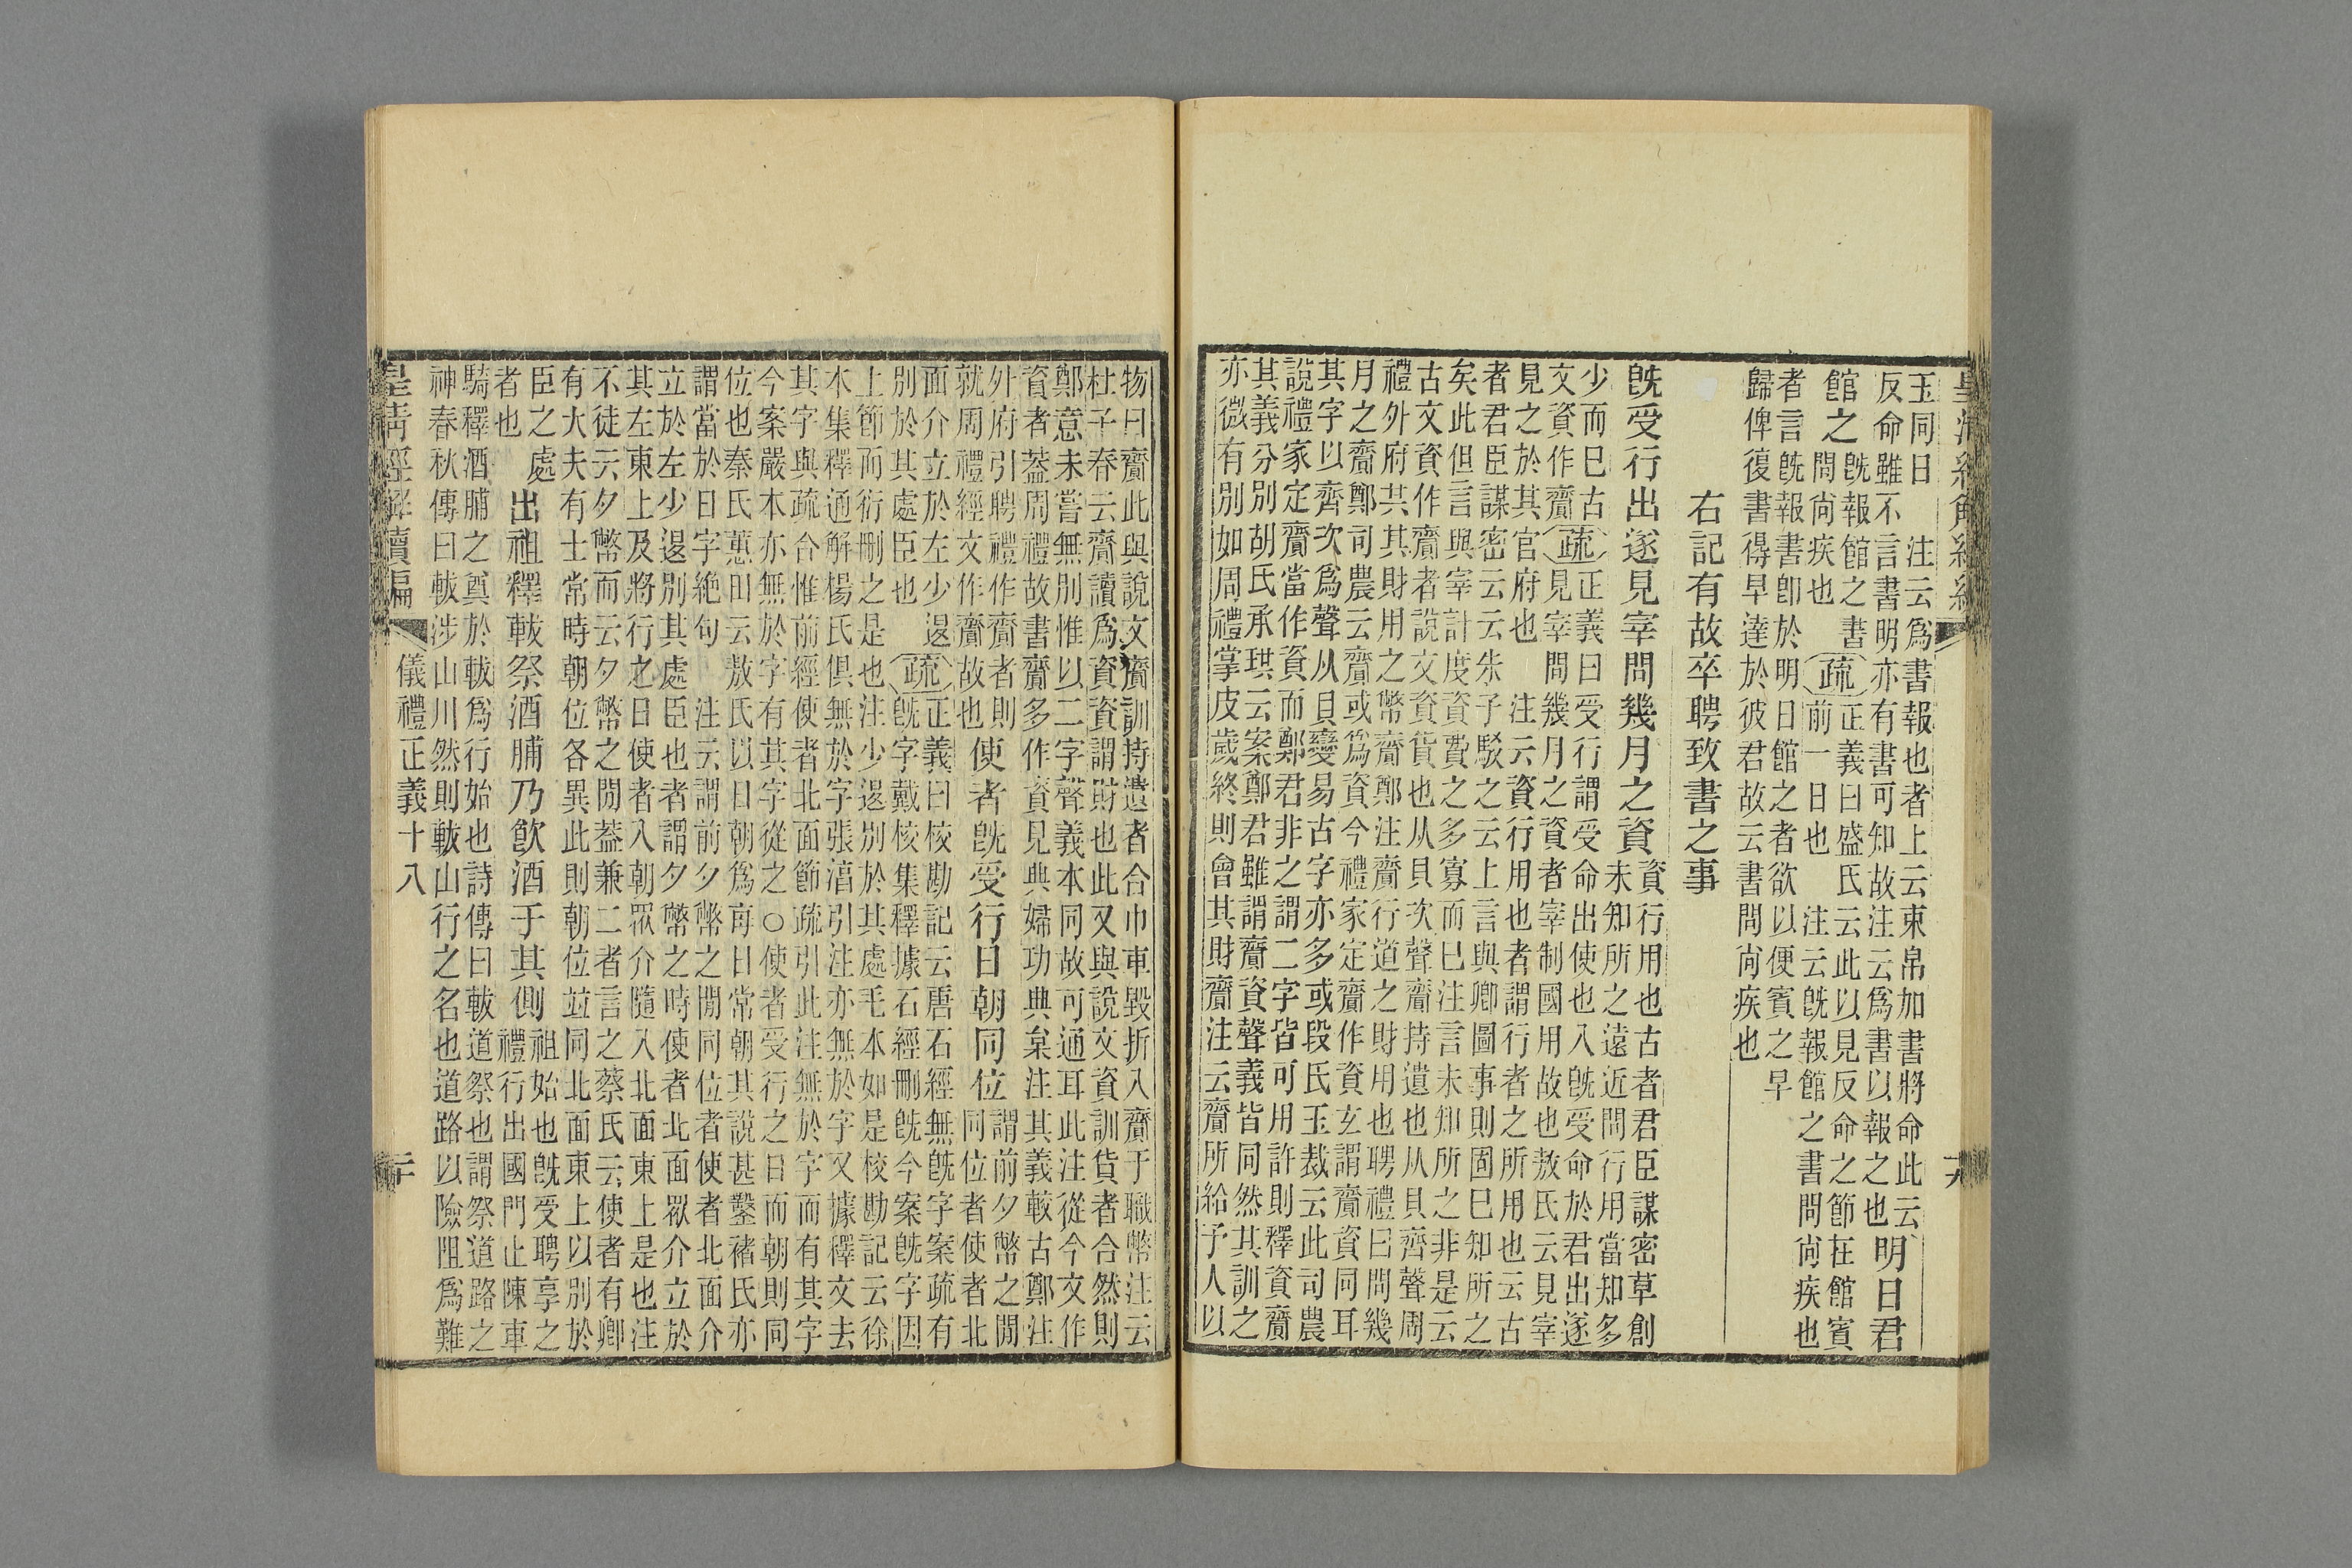 皇清經解續編
玉同日　注云爲書報也者上云束帛加書將命此云
反命雖不言書明亦有書可知故注云爲書以報之也明日君
館之既報館之書
問尚疾也疏正義曰盛氏云此以見反命之節在館賓
前一日也　注云既報館之書問尚疾也
者言既報書卽於明日館之者欲以便賓之早
歸俾復書得早達於彼君故云書問尚疾也
右記有故卒聘致書之事
既受行出遂見宰問幾月之資資行用也古者君臣謀密草創
未知所之遠近問行用當知多
少而已古
文資作齎疏正義曰受行謂受命出使也入既受命於君出遂
見宰問幾月之資者宰制國用故也敖氏云見宰
見之於其官府也　注云資行用也者謂行者之所用也云古
者君臣謀密云云朱子駁之云上言與卿圖事則固已知所之
矣此但言與宰計度資費之多寡而已注言未知所之非是云
古文資作齎者說文資貨也从貝次聲齎持遺也从貝齊聲周
禮外府共其財用之幣齎鄭注齎行道之財用也聘禮曰問幾
月之齎鄭司農云齎或爲資今禮家定齎作資玄謂齎資同耳
其字以齊次爲聲从貝變易古字亦多或段氏玉裁云此司農
說禮家定齎當作資而鄭君非之謂二字皆可用許則釋資齎
其義分別胡氏承珙云案鄭君雖謂齎資聲義皆同然其訓之
亦微有別如周禮掌皮歲終則會其財齎注云齎所給予人以
物曰齎此與說文齎訓持遺者合巾車毀折入齎于職幣注云
杜子春云齎讀爲資資謂財也此又與說文資訓貨者合然則
鄭意未嘗無別惟以二字聲義本同故可通耳此注從今文作
資者葢周禮故書齎多作資見典婦功典枲注其義較古鄭注
外府引聘禮作齎者則
就周禮經文作齎故也使者既受行日朝同位謂前夕幣之閒
同位者使者北
面介立於左少退
別於其處臣也疏正義曰校勘記云唐石經無既字案疏有
既字戴校集釋據石經刪既今案既字因
上節而衍刪之是也注少退別於其處毛本如是校勘記云徐
本集釋通解楊氏俱無於字張淳引注亦無於字又據釋文去
其字與疏合惟前經使者北面節疏引此注無於字而有其字
今案嚴本亦無於字有其字從之○使者受行之日而朝則同
位也秦氏蕙田云敖氏以日朝爲每日常朝其說甚鑿褚氏亦
謂當於日字絕句　注云謂前夕幣之閒同位者使者北面介
立於左少退別其處臣也者謂夕幣之時使者北面眾介立於
其左東上及將行之日使者入朝眾介隨入北面東上是也注
不徒云夕幣而云夕幣之閒葢兼二者言之蔡氏云使者有卿
有大夫有士常時朝位各異此則朝位竝同北面東上以別於
臣之處
者也出祖釋軷祭酒脯乃飮酒于其側祖始也既受聘享之
禮行出國門止陳車
騎釋酒脯之奠於軷爲行始也詩傳曰軷道祭也謂祭道路之
神春秋傳曰軷涉山川然則軷山行之名也道路以險阻爲難
皇清經解續編
儀禮正義十八
二十